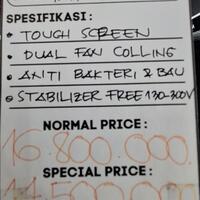 SPESIFIKASI :
• TOUGH SCREEN
• DUAL FAN COLLING
• ANTI BAKTERI & BAU
• STABILIZER FREE 130-300V
NORMAL PRICE :
16.800.000.
SPECIAL PRICE :